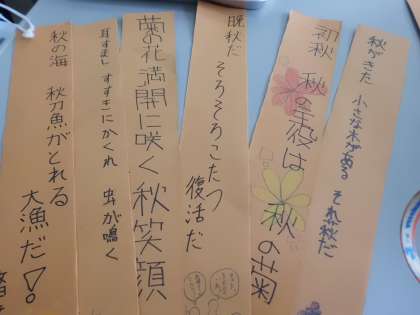 秋がきた 小さな木がある それが秋だ
初秋 秋の主役は 秋の菊
晩秋だ そろそろこたつ 復活だ
菊の花満開に咲く秋笑顔
耳すまし すすきにかくれ 虫が鳴く
秋の海 秋刀魚がとれる 大漁だ!